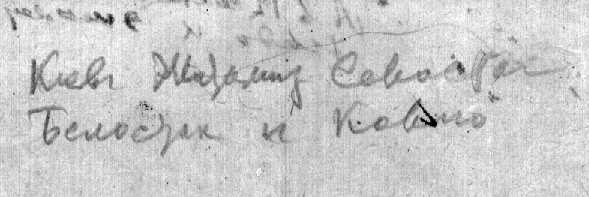 Киев Житомир Севастоп
Белосток и Ковно